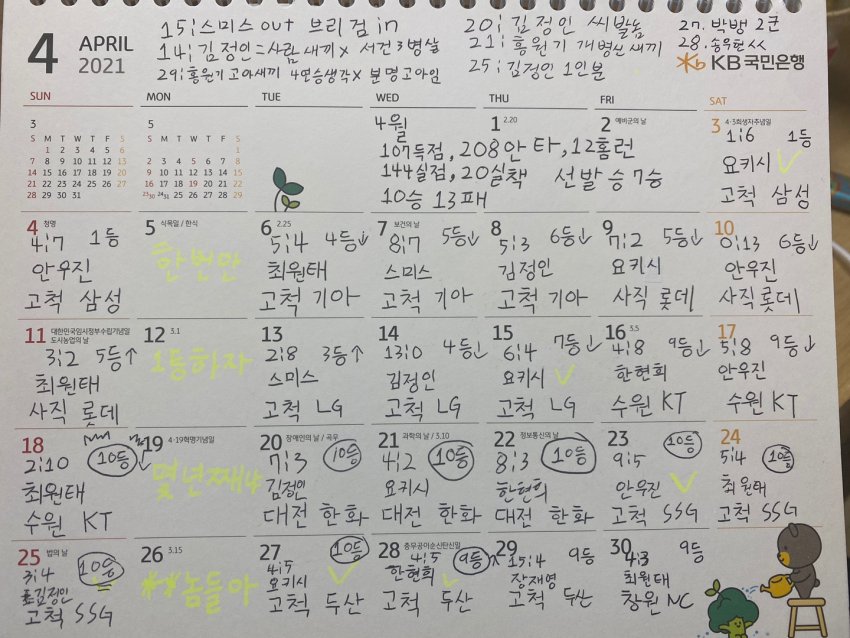 4 APRIL 2021
15; 스미스 out 브리검 in
14; 김정인 = 사람새끼x 서건3병살
29; 홍원기 고아새끼 4연승생각x 분명고아임
20; 김정인 씨발놈
21; 홍원기 개병신새끼
25; 김정인 1인분
27. 박뱅 2군
28.
KB국민은행
SUN MON TUE WED THU FRI SAT
3
S M T W T F S
1 2 3 4 5 6
7 8 9 10 11 12 13
14 15 16 17 18 19 20
21 22 23 24 25 26 27
28 29 30 31
5
S M T W T F S
1
2 3 4 5 6 7 8
9 10 11 12 13 14 15
16 17 18 19 20 21 22
23/30 24/31 25 26 27 28 29
4월
107득점, 208안타, 12홈런
144실점, 20실책 선발승 7승
10승 13패
1 2.20
2 예비군의 날
3 4·3희생자추념일
1;6 1등
요키시
고척 삼성
4 청명
4;7 1등
안우진
고척 삼성
5 식목일 / 한식
한번만
6 2.25
5;4 4등↓
최원태
고척 기아
7 보건의 날
8;7 5등↓
스미스
고척 기아
8
5;3 6등↓
김정인
고척 기아
9
7;2 5등↓
요키시
사직 롯데
10
0;13 6등↓
안우진
사직 롯데
11 대한민국임시정부수립기념일
도시농업의 날
3;2 5등↑
최원태
사직 롯데
12 3.1
1등하자
13
2;8 3등↑
스미스
고척 LG
14
13;0 4등↓
김정인
고척 LG
15
6;4 7등↓
요키시
고척 LG
16 3.5
4;8 9등↓
한현희
수원 KT
17
5;8 9등↓
안우진
수원 KT
18
2;10 10등↓
최원태
수원 KT
19 4·19혁명기념일
몇년째냐
20 장애인의 날 / 곡우
7;3 10등
김정인
대전 한화
21 과학의 날 / 3.10
4;2 10등
요키시
대전 한화
22 정보통신의 날
8;3 10등
한현희
대전 한화
23
9;5 10등
안우진
고척 SSG
24
5;4 10등
최원태
고척 SSG
25 법의 날
3;4 10등
김정인
고척 SSG
26 3.15
**놈들아
27
4;5 10등
요키시
고척 두산
28 충무공이순신탄신일
4;5 9등↑
한현희
고척 두산
29
15;4 9등
장재영
고척 두산
30
4;3 9등
최원태
창원 NC